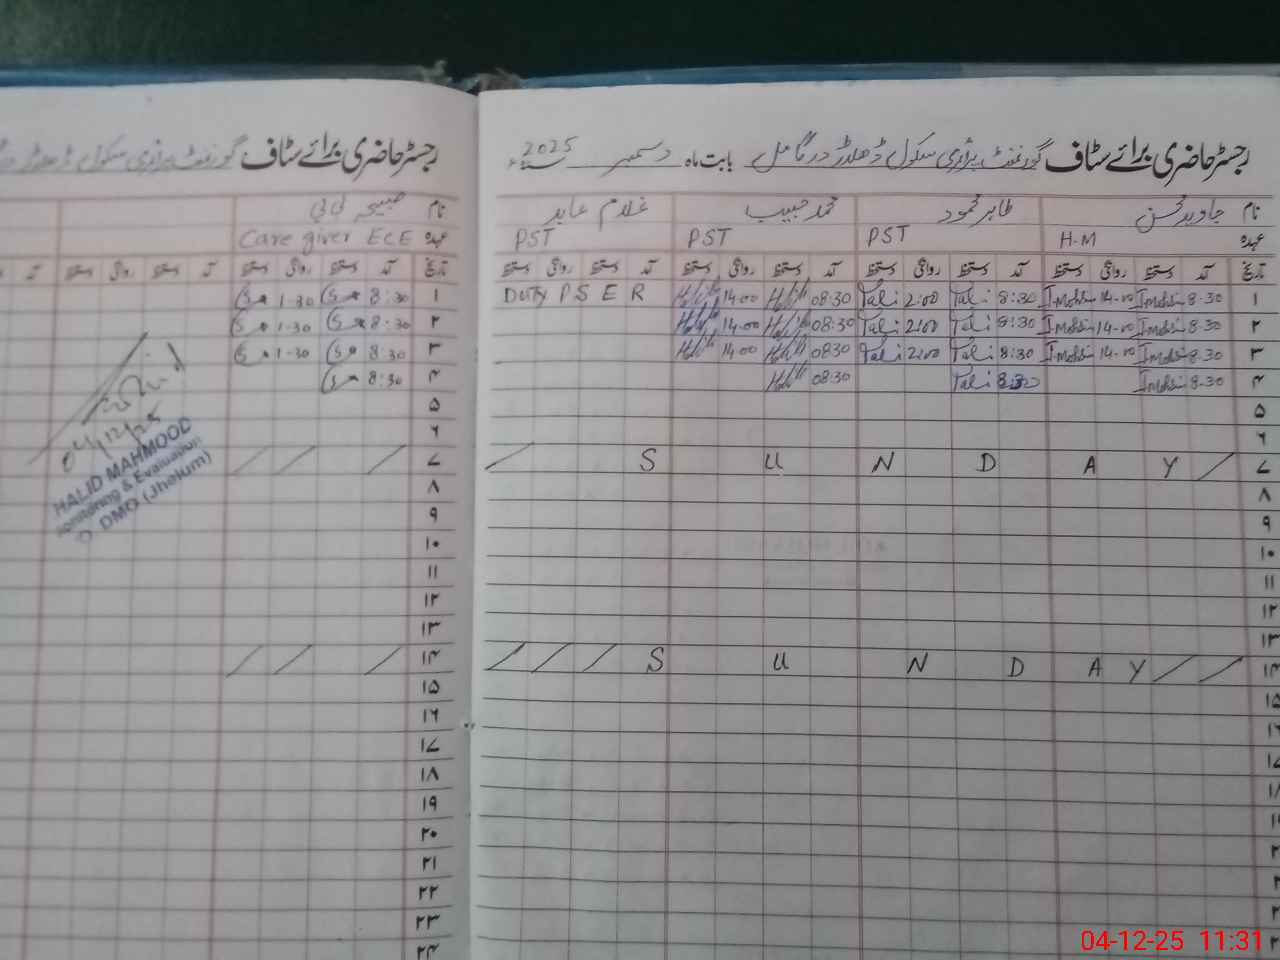 رجسٹر حاضری برائے سٹاف گورنمنٹ پرائمری سکول ڈھلڈر درگامل بابت ماہ دسمبر 2025ء
نام جاوید محسن طاہر محمود محمد حبیب غلام عابد
عہدہ H-M PST PST PST
تاریخ آمد دستخط روانگی دستخط آمد دستخط روانگی دستخط آمد دستخط روانگی دستخط آمد دستخط روانگی دستخط
۱ 8-30 I mohsin 14-00 I mohsin 8:30 2:00 08:30 Habib 14-00 Habib DUTY P S E R
۲ 8-30 I mohsin 14-00 I mohsin 8:30 2:00 08:30 Habib 14-00 Habib
۳ 8-30 I mohsin 14-00 I mohsin 8:30 2:00 0830 Habib 14-00 Habib
۴ 8-30 I mohsin 08:30 Habib
۵
۶
۷ S U N D A Y
۸
۹
۱۰
۱۱
۱۲
۱۳
۱۴ S U N D A Y
۱۵
رجسٹر حاضری برائے سٹاف گورنمنٹ پرائمری سکول ڈھلڈر
نام صبیحہ بی بی
عہدہ Care giver ECE
تاریخ آمد دستخط روانگی دستخط آمد دستخط روانگی دستخط آمد
۱ 8:30 1-30
۲ 8:30 1-30
۳ 8:30 1-30
۴ 8:30
۵
۶
۷
۸
۹
۱۰
۱۱
۱۲
۱۳
۱۴
۱۵
۱۶
۱۷
۱۸
۱۹
۲۰
۲۱
۲۲
۲۳
۲۴
04/12/25
HALID MAHMOOD
onitoring & Evaluation
O. DMO (Jhelum)
04-12-25 11:31